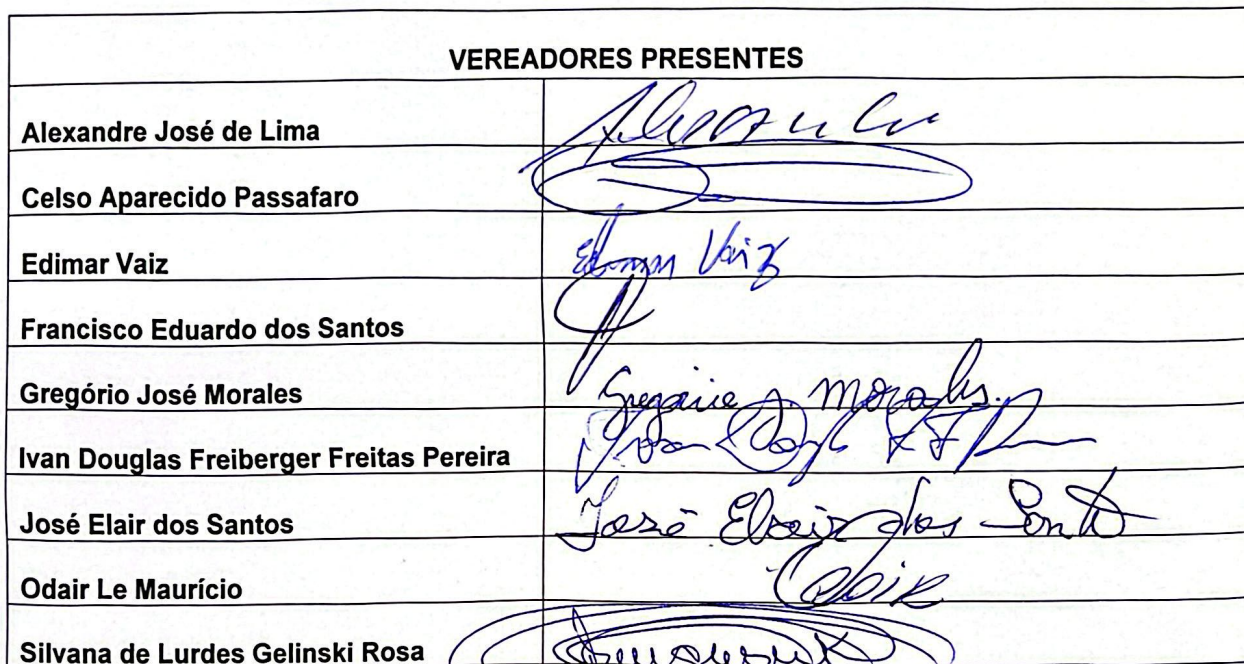 VEREADORES PRESENTES
Alexandre José de Lima
Celso Aparecido Passafaro
Edimar Vaiz Edimar Vaiz
Francisco Eduardo dos Santos
Gregório José Morales Gregório J. Morales.
Ivan Douglas Freiberger Freitas Pereira Ivan
José Elair dos Santos José Elair dos Santos
Odair Le Maurício Odair
Silvana de Lurdes Gelinski Rosa